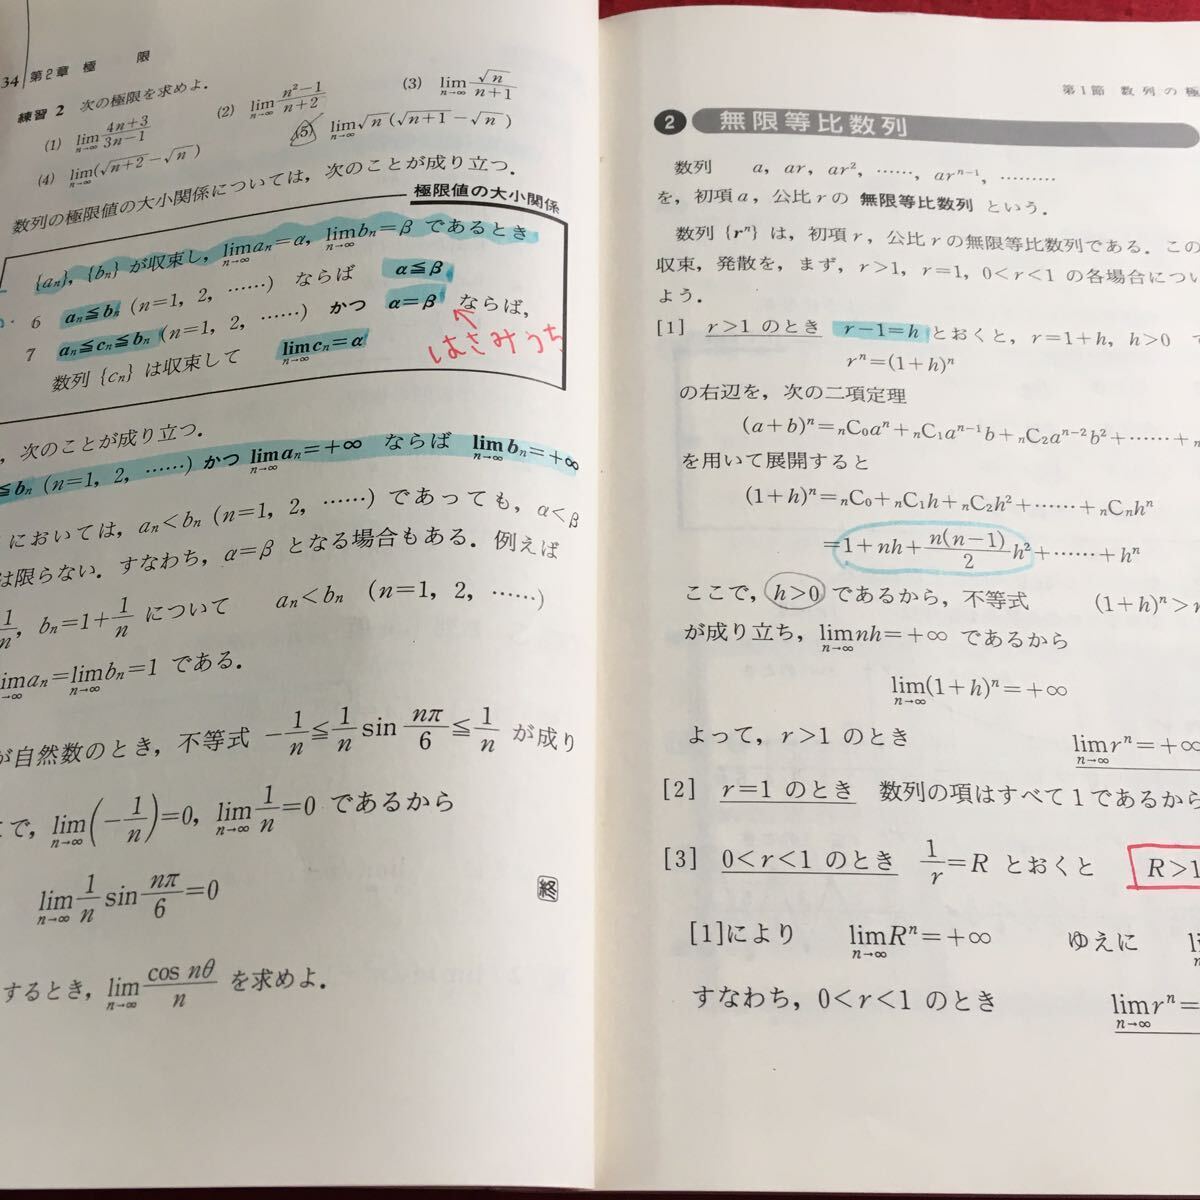 34 第2章 極 限
練習 2 次の極限を求めよ.
(1) lim_{n→∞} (4n+3)/(3n−1) (2) lim_{n→∞} (n²−1)/(n+2) (3) lim_{n→∞} √n/(n+1)
(4) lim_{n→∞} (√(n+2)−√n) (5) lim_{n→∞} √n(√(n+1)−√n)
数列の極限値の大小関係については，次のことが成り立つ.
極限値の大小関係
{aₙ}，{bₙ} が収束し，lim_{n→∞} aₙ=α，lim_{n→∞} bₙ=β であるとき
6 aₙ≦bₙ (n=1, 2, ……) ならば α≦β
7 aₙ≦cₙ≦bₙ (n=1, 2, ……) かつ α=β ならば，
はさみうち
数列 {cₙ} は収束して lim_{n→∞} cₙ=α
，次のことが成り立つ.
≦bₙ (n=1, 2, ……) かつ lim_{n→∞} aₙ=+∞ ならば lim_{n→∞} bₙ=+∞
においては，aₙ<bₙ (n=1, 2, ……) であっても，α<β
は限らない．すなわち，α=β となる場合もある．例えば
1/n，bₙ=1+1/n について aₙ<bₙ (n=1, 2, ……)
lim aₙ=lim_{n→∞} bₙ=1 である．
が自然数のとき，不等式 −1/n≦(1/n)sin(nπ/6)≦1/n が成り
で，lim_{n→∞}(−1/n)=0，lim_{n→∞} 1/n=0 であるから
lim_{n→∞} (1/n)sin(nπ/6)=0 終
するとき，lim_{n→∞} (cos nθ)/n を求めよ．
第1節 数列の極
2 無限等比数列
数列 a, ar, ar², ……, arⁿ⁻¹, ………
を，初項 a，公比 r の 無限等比数列 という．
数列 {rⁿ} は，初項 r，公比 r の無限等比数列である．この
収束，発散を，まず，r>1，r=1，0<r<1 の各場合につい
よう．
[1] r>1 のとき r−1=h とおくと，r=1+h，h>0
rⁿ=(1+h)ⁿ
の右辺を，次の二項定理
(a+b)ⁿ=ₙC₀aⁿ+ₙC₁aⁿ⁻¹b+ₙC₂aⁿ⁻²b²+……+
を用いて展開すると
(1+h)ⁿ=ₙC₀+ₙC₁h+ₙC₂h²+……+ₙCₙhⁿ
=1+nh+(n(n−1)/2)h²+……+hⁿ
ここで，h>0 であるから，不等式 (1+h)ⁿ>
が成り立ち，lim_{n→∞} nh=+∞ であるから
lim_{n→∞} (1+h)ⁿ=+∞
よって，r>1 のとき lim_{n→∞} rⁿ=+∞
[2] r=1 のとき 数列の項はすべて1であるから
[3] 0<r<1 のとき 1/r=R とおくと R>1
[1]により lim_{n→∞} Rⁿ=+∞ ゆえに
すなわち，0<r<1 のとき lim_{n→∞} rⁿ=